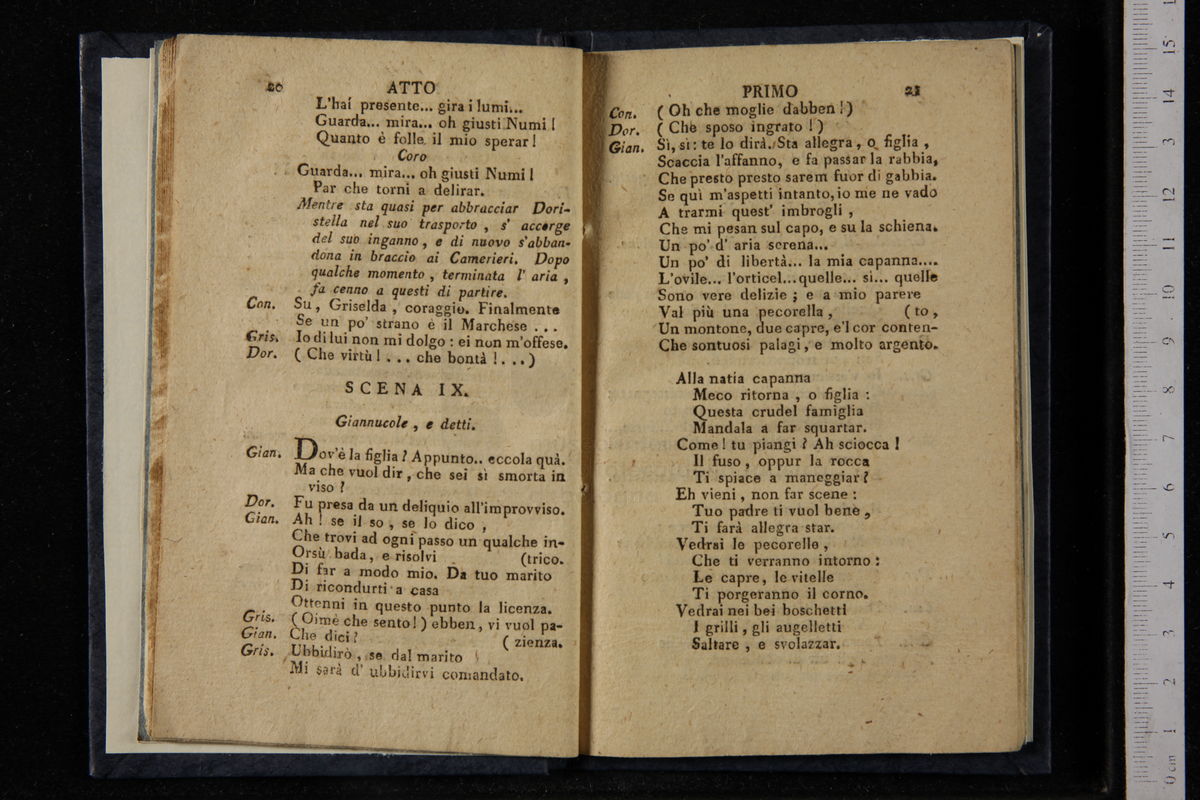 20 ATTO
L'hai presente... gira i lumi...
Guarda... mira... oh giusti Numi!
Quanto è folle il mio sperar!
Coro
Guarda... mira... oh giusti Numi!
Par che torni a delirar.
Mentre sta quasi per abbracciar Dori-
stella nel suo trasporto, s' accorge
del suo inganno, e di nuovo s'abban-
dona in braccio ai Camerieri. Dopo
qualche momento, terminata l' aria,
fa cenno a questi di partire.
Con. Su, Griselda, coraggio. Finalmente
Se un po' strano è il Marchese ...
Gris. Io di lui non mi dolgo: ei non m'offese.
Dor. ( Che virtù! ... che bontà! ...)
SCENA IX.
Giannucole, e detti.
Gian. Dov'è la figlia? Appunto.. eccola quà.
Ma che vuol dir, che sei sì smorta in
viso?
Dor. Fu presa da un deliquio all'improvviso.
Gian. Ah! se il so, se lo dico,
Che trovi ad ogni passo un qualche in-
Orsù bada, e risolvi (trico.
Di far a modo mio. Da tuo marito
Di ricondurti a casa
Ottenni in questo punto la licenza.
Gris. (Oimè che sento!) ebben, vi vuol pa-
Gian. Che dici? ( zienza.
Gris. Ubbidirò, se dal marito
Mi sarà d' ubbidirvi comandato.
PRIMO 21
Con. ( Oh che moglie dabben!)
Dor. ( Che sposo ingrato!)
Gian. Sì, sì: te lo dirà. Sta allegra, o figlia,
Scaccia l'affanno, e fa passar la rabbia,
Che presto presto sarem fuor di gabbia.
Se quì m'aspetti intanto, io me ne vado
A trarmi quest' imbrogli,
Che mi pesan sul capo, e su la schiena.
Un po' d' aria serena...
Un po' di libertà... la mia capanna....
L'ovile... l'orticel... quelle... sì... quelle
Sono vere delizie; e a mio parere
Val più una pecorella, (to,
Un montone, due capre, e'l cor conten-
Che sontuosi palagi, e molto argento.
Alla natìa capanna
Meco ritorna, o figlia:
Questa crudel famiglia
Mandala a far squartar.
Come! tu piangi? Ah sciocca!
Il fuso, oppur la rocca
Ti spiace a maneggiar?
Eh vieni, non far scene:
Tuo padre ti vuol bene,
Ti farà allegra star.
Vedrai le pecorelle,
Che ti verranno intorno:
Le capre, le vitelle
Ti porgeranno il corno.
Vedrai nei bei boschetti
I grilli, gli augelletti
Saltare, e svolazzar.
0 cm 1 2 3 4 5 6 7 8 9 10 11 12 13 14 15